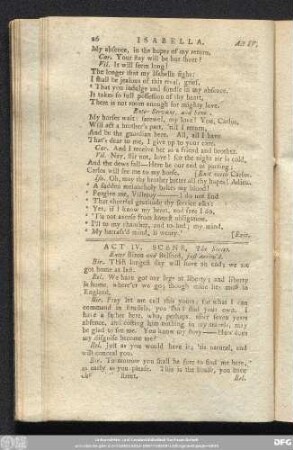 26 ISABELLA. Act IV.
My absence, in the hopes of my return.
Car. Your stay will be but short?
Vil. It will seem long!
The longer that my Isabella sighs:
I shall be jealous of this rival, grief,
" That you indulge and fondle in my absence.
It takes so full possession of thy heart,
There is not room enough for mighty love.
Enter Servant, and bows.
My horses wait: farewel, my love! You, Carlos,
Will act a brother's part, 'till I return,
And be the guardian here. All, all I have
That's dear to me, I give up to your care.
Car. And I receive her as a friend and brother.
Vil. Nay, stir not, love! for the night air is cold,
And the dews fall—Here be our end of parting;
Carlos will see me to my horse. [Exit with Carlos.
Isa. Oh, may thy brother better all thy hopes! Adieu.
" A sudden melancholy bakes my blood!
" Forgive me, Villeroy—I do not find
" That chearful gratitude thy service asks:
" Yet, if I know my heart, and sure I do,
" 'Tis not averse from honest obligation.
" I'll to my chamber, and to bed; my mind,
" My harrass'd mind, is weary." [Exit.
ACT IV. SCENE, The Street.
Enter Biron and Belford, just arriv'd.
Bir. THE longest day will have an end; we are
got home at last.
Bel. We have got our legs at liberty; and liberty
is home, where'er we go; though mine lies most in
England.
Bir. Pray let me call this yours: for what I can
command in Brussels, you shall find your own. I
have a father here, who, perhaps, after seven years
absence, and costing him nothing in my travels, may
be glad to see me. You know my story—How does
my disguise become me?
Bel. Just as you would have it; 'tis natural, and
will conceal you.
Bir. To-morrow you shall be sure to find me here,
as early as you please. This is the house, you have
Bel.